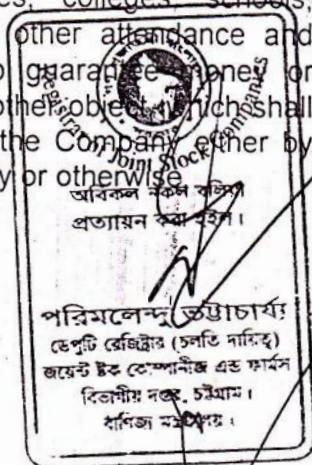 es, colleges, schools,
other attendance and
o guarantee money or
other object which shall
the Company either by
y or otherwise
Registrar of Joint Stock Companies
অবিকল নকল বলিয়া
প্রত্যায়ন করা হইল।
পরিমলেন্দু ভট্টাচার্য্য
ডেপুটি রেজিষ্ট্রার (চলতি দায়িত্ব)
জয়েন্ট ষ্টক কোম্পানীজ এন্ড ফার্মস
বিভাগীয় দপ্তর, চট্টগ্রাম।
বাণিজ্য মন্ত্রণালয়।